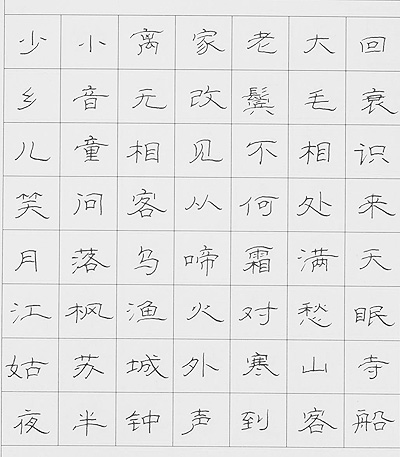 少小离家老大回
乡音无改鬓毛衰
儿童相见不相识
笑问客从何处来
月落乌啼霜满天
江枫渔火对愁眠
姑苏城外寒山寺
夜半钟声到客船